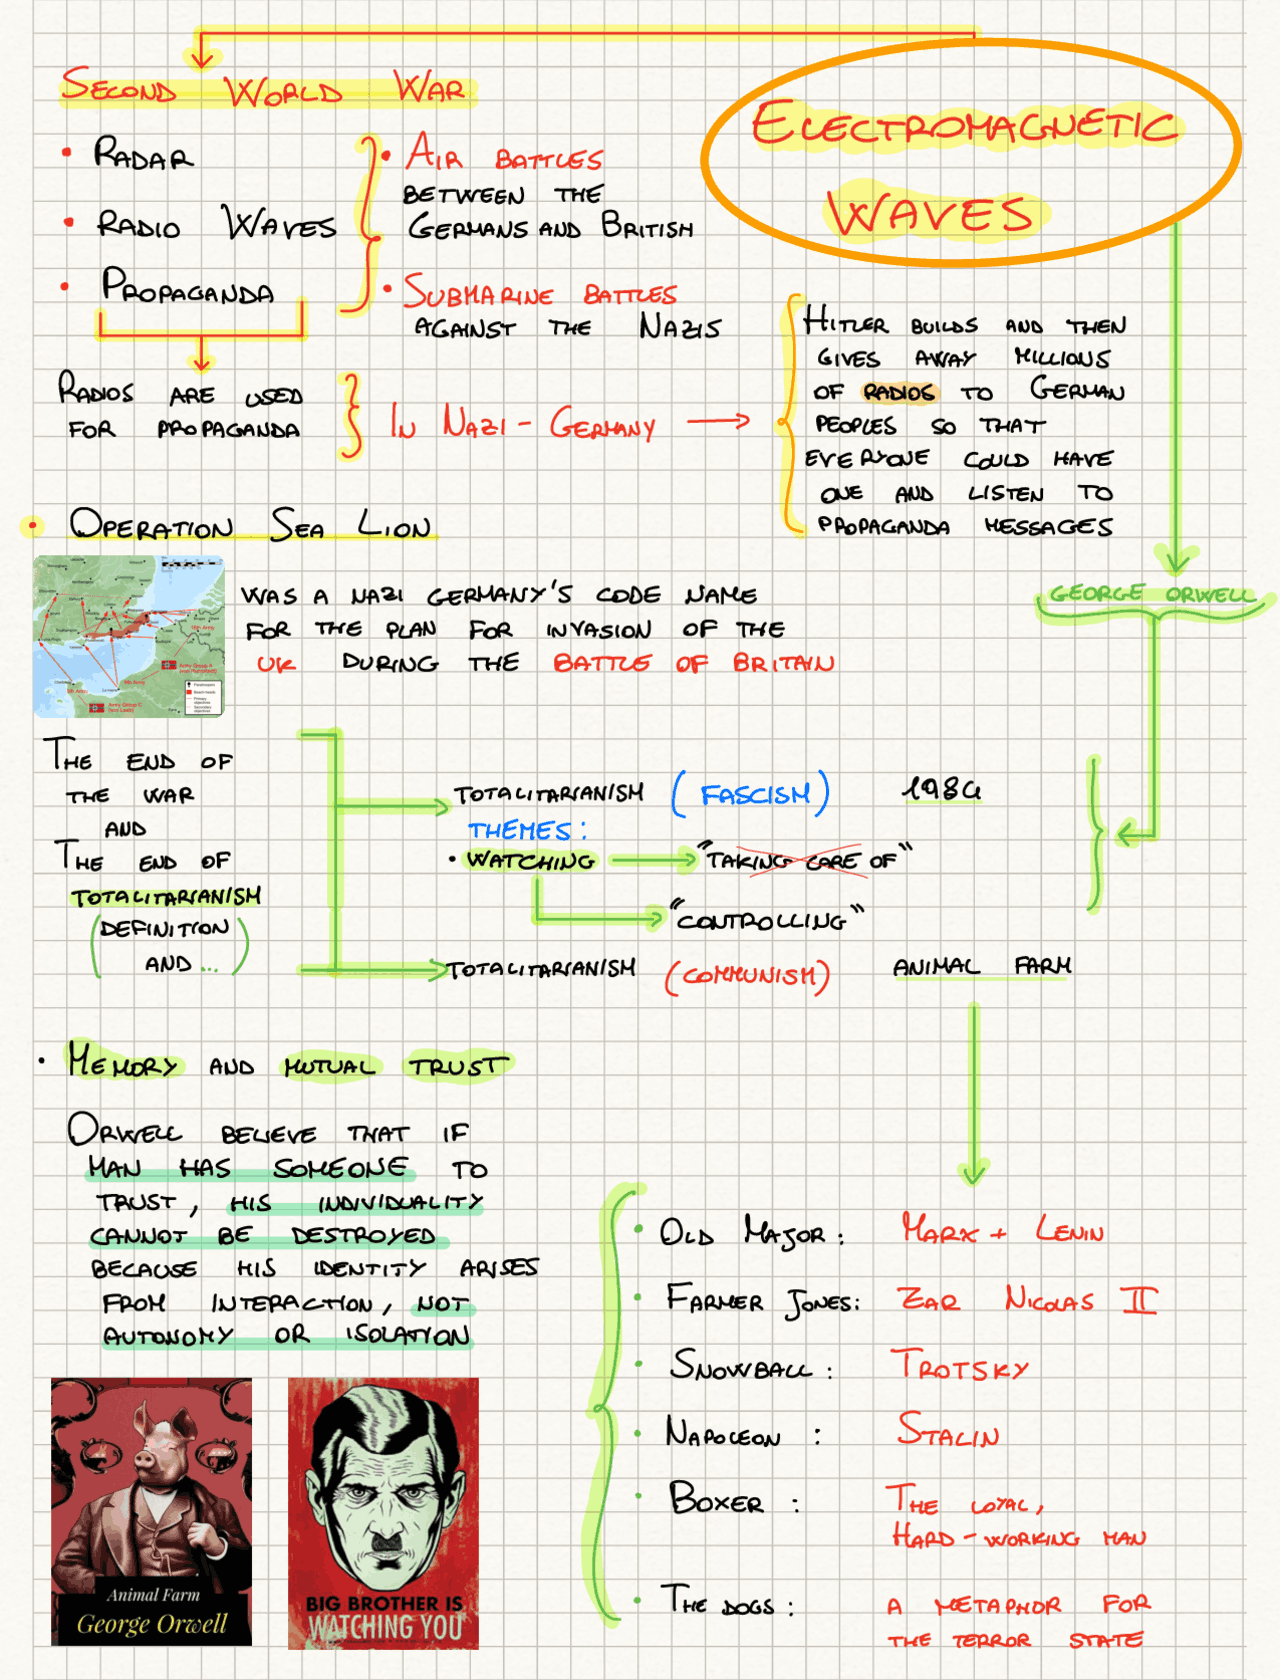 SECOND WORLD WAR
ELECTROMAGNETIC
WAVES
• RADAR
• RADIO WAVES
• PROPAGANDA
• AIR BATTLES
BETWEEN THE
GERMANS AND BRITISH
• SUBMARINE BATTLES
AGAINST THE NAZIS
RADIOS ARE USED
FOR PROPAGANDA
IN NAZI - GERMANY
HITLER BUILDS AND THEN
GIVES AWAY MILLIONS
OF RADIOS TO GERMAN
PEOPLES SO THAT
EVERYONE COULD HAVE
ONE AND LISTEN TO
PROPAGANDA MESSAGES
• OPERATION SEA LION
WAS A NAZI GERMANY'S CODE NAME
FOR THE PLAN FOR INVASION OF THE
UK DURING THE BATTLE OF BRITAIN
GEORGE ORWELL
THE END OF
THE WAR
AND
THE END OF
TOTALITARIANISM
(DEFINITION
AND ...)
TOTALITARIANISM (FASCISM) 1984
THEMES:
• WATCHING
"TAKING CARE OF"
"CONTROLLING"
TOTALITARIANISM (COMMUNISM) ANIMAL FARM
• MEMORY AND MUTUAL TRUST
ORWELL BELIEVE THAT IF
MAN HAS SOMEONE TO
TRUST, HIS INDIVIDUALITY
CANNOT BE DESTROYED
BECAUSE HIS IDENTITY ARISES
FROM INTERACTION, NOT
AUTONOMY OR ISOLATION
• OLD MAJOR: MARX + LENIN
• FARMER JONES: ZAR NICOLAS II
• SNOWBALL: TROTSKY
• NAPOLEON: STALIN
• BOXER: THE LOYAL,
HARD-WORKING MAN
• THE DOGS: A METAPHOR FOR
THE TERROR STATE
Animal Farm
George Orwell
BIG BROTHER IS
WATCHING YOU